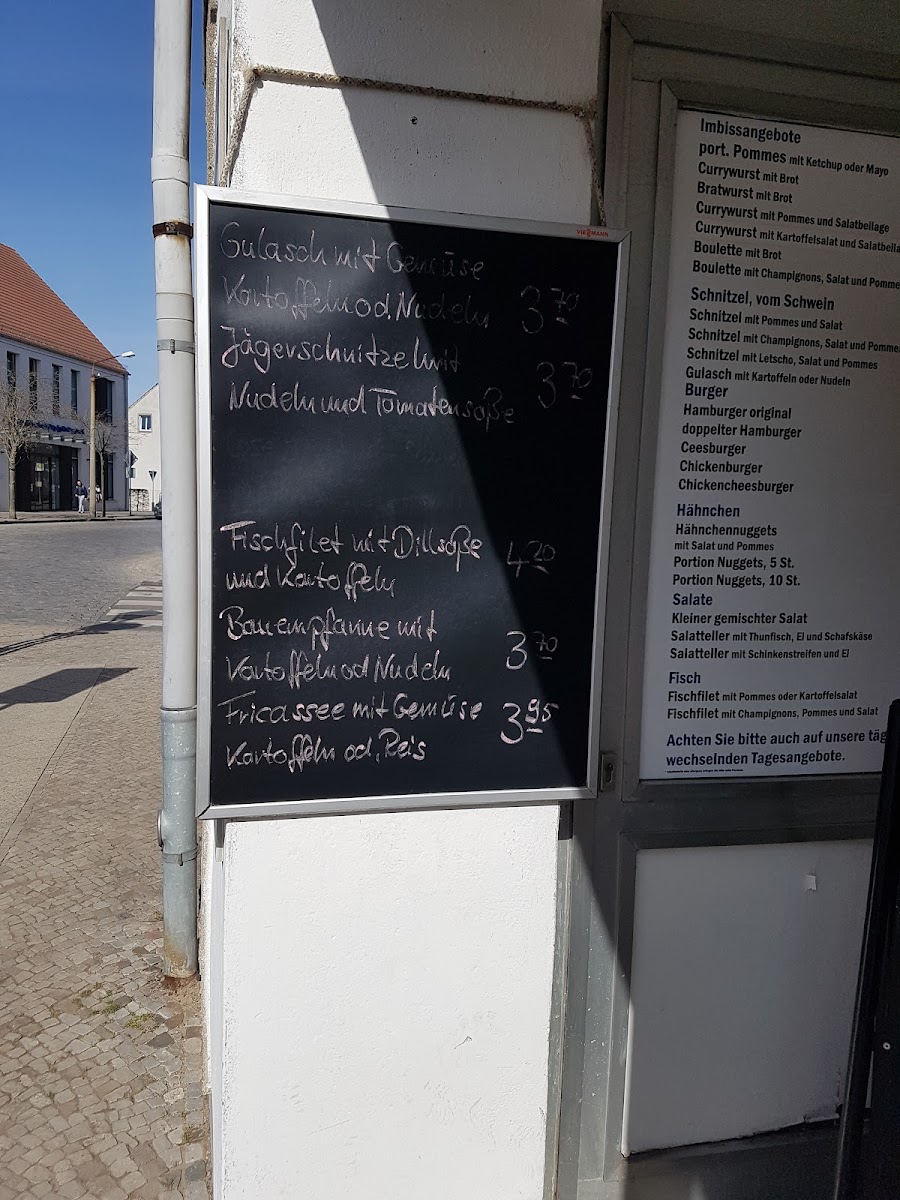 VIESMANN
Gulasch mit Gemüse
Kartoffeln od. Nudeln 3 70
Jägerschnitzel mit
Nudeln und Tomatensoße 3 70
Fischfilet mit Dillsoße
und Kartoffeln 4 20
Bauernpfanne mit
Kartoffeln od Nudeln 3 70
Fricassee mit Gemüse
Kartoffeln od. Reis 3 95
Imbissangebote
port. Pommes mit Ketchup oder Mayo
Currywurst mit Brot
Bratwurst mit Brot
Currywurst mit Pommes und Salatbeilage
Currywurst mit Kartoffelsalat und Salatbeila
Boulette mit Brot
Boulette mit Champignons, Salat und Pomme
Schnitzel, vom Schwein
Schnitzel mit Pommes und Salat
Schnitzel mit Champignons, Salat und Pommes
Schnitzel mit Letscho, Salat und Pommes
Gulasch mit Kartoffeln oder Nudeln
Burger
Hamburger original
doppelter Hamburger
Ceesburger
Chickenburger
Chickencheesburger
Hähnchen
Hähnchennuggets
mit Salat und Pommes
Portion Nuggets, 5 St.
Portion Nuggets, 10 St.
Salate
Kleiner gemischter Salat
Salatteller mit Thunfisch, Ei und Schafskäse
Salatteller mit Schinkenstreifen und Ei
Fisch
Fischfilet mit Pommes oder Kartoffelsalat
Fischfilet mit Champignons, Pommes und Salat
Achten Sie bitte auch auf unsere täg
wechselnden Tagesangebote.